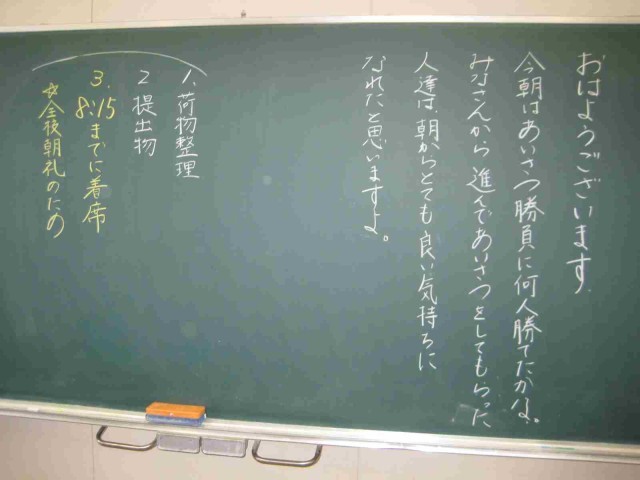 おはようございます。
今朝はあいさつ勝負に何人勝てたかな。
みなさんから進んであいさつをしてもらった
人達は、朝からとても良い気持ちに
なれたと思いますよ。
1. 荷物整理
2 提出物
3. 8:15までに着席
☆全校朝礼のため